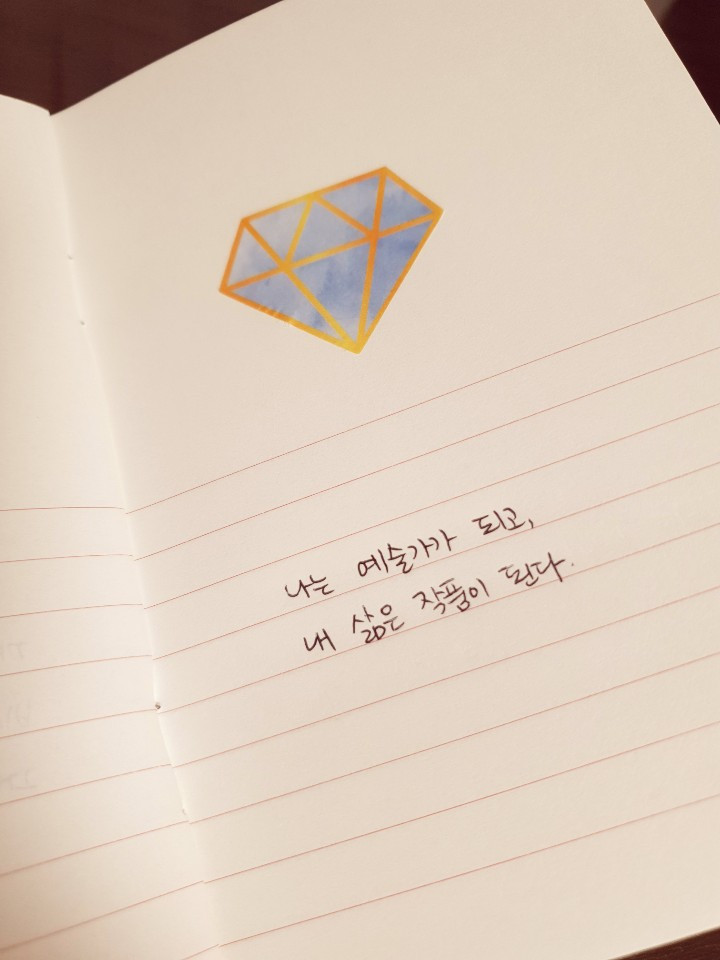 나는 예술가가 되고,
내 삶은 작품이 된다.